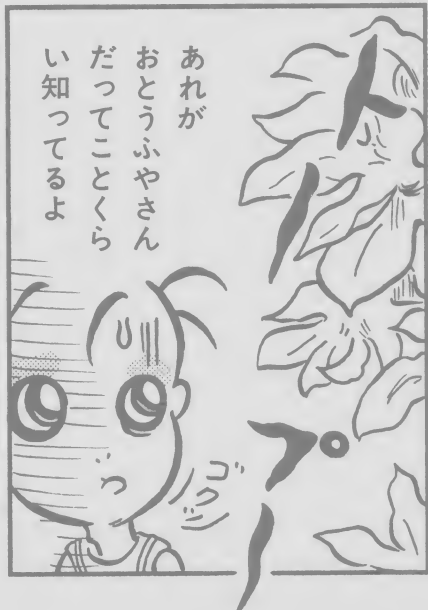 トープー
あれが
おとうふやさん
だってことくら
い知ってるよ
ゴクッ